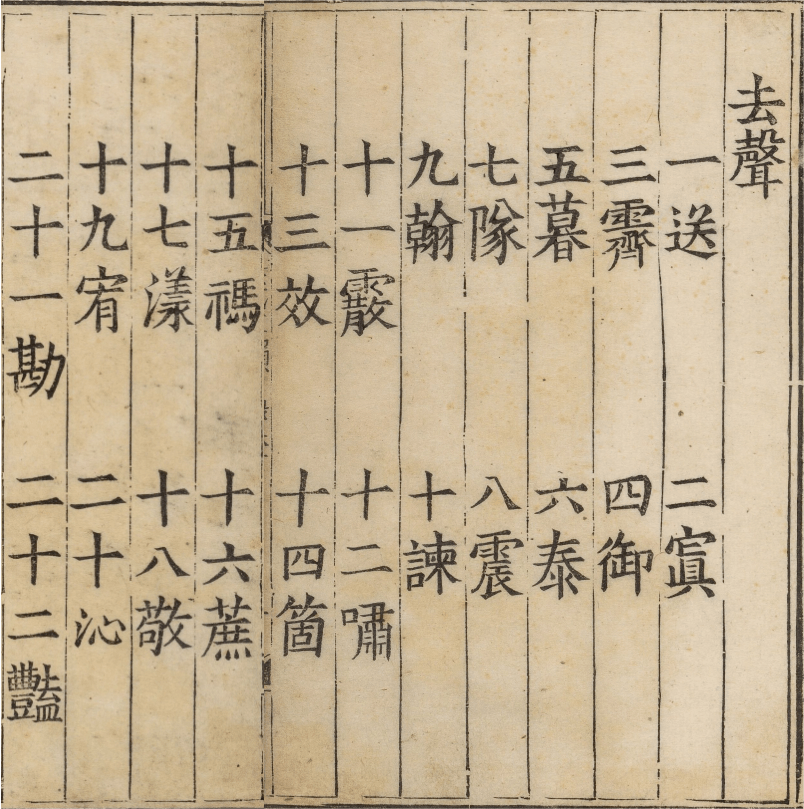 去聲
一送 二寘
三霽 四御
五暮 六泰
七隊 八震
九翰 十諫
十一霰 十二嘯
十三效 十四箇
十五禡 十六蔗
十七漾 十八敬
十九宥 二十沁
二十一勘 二十二豔